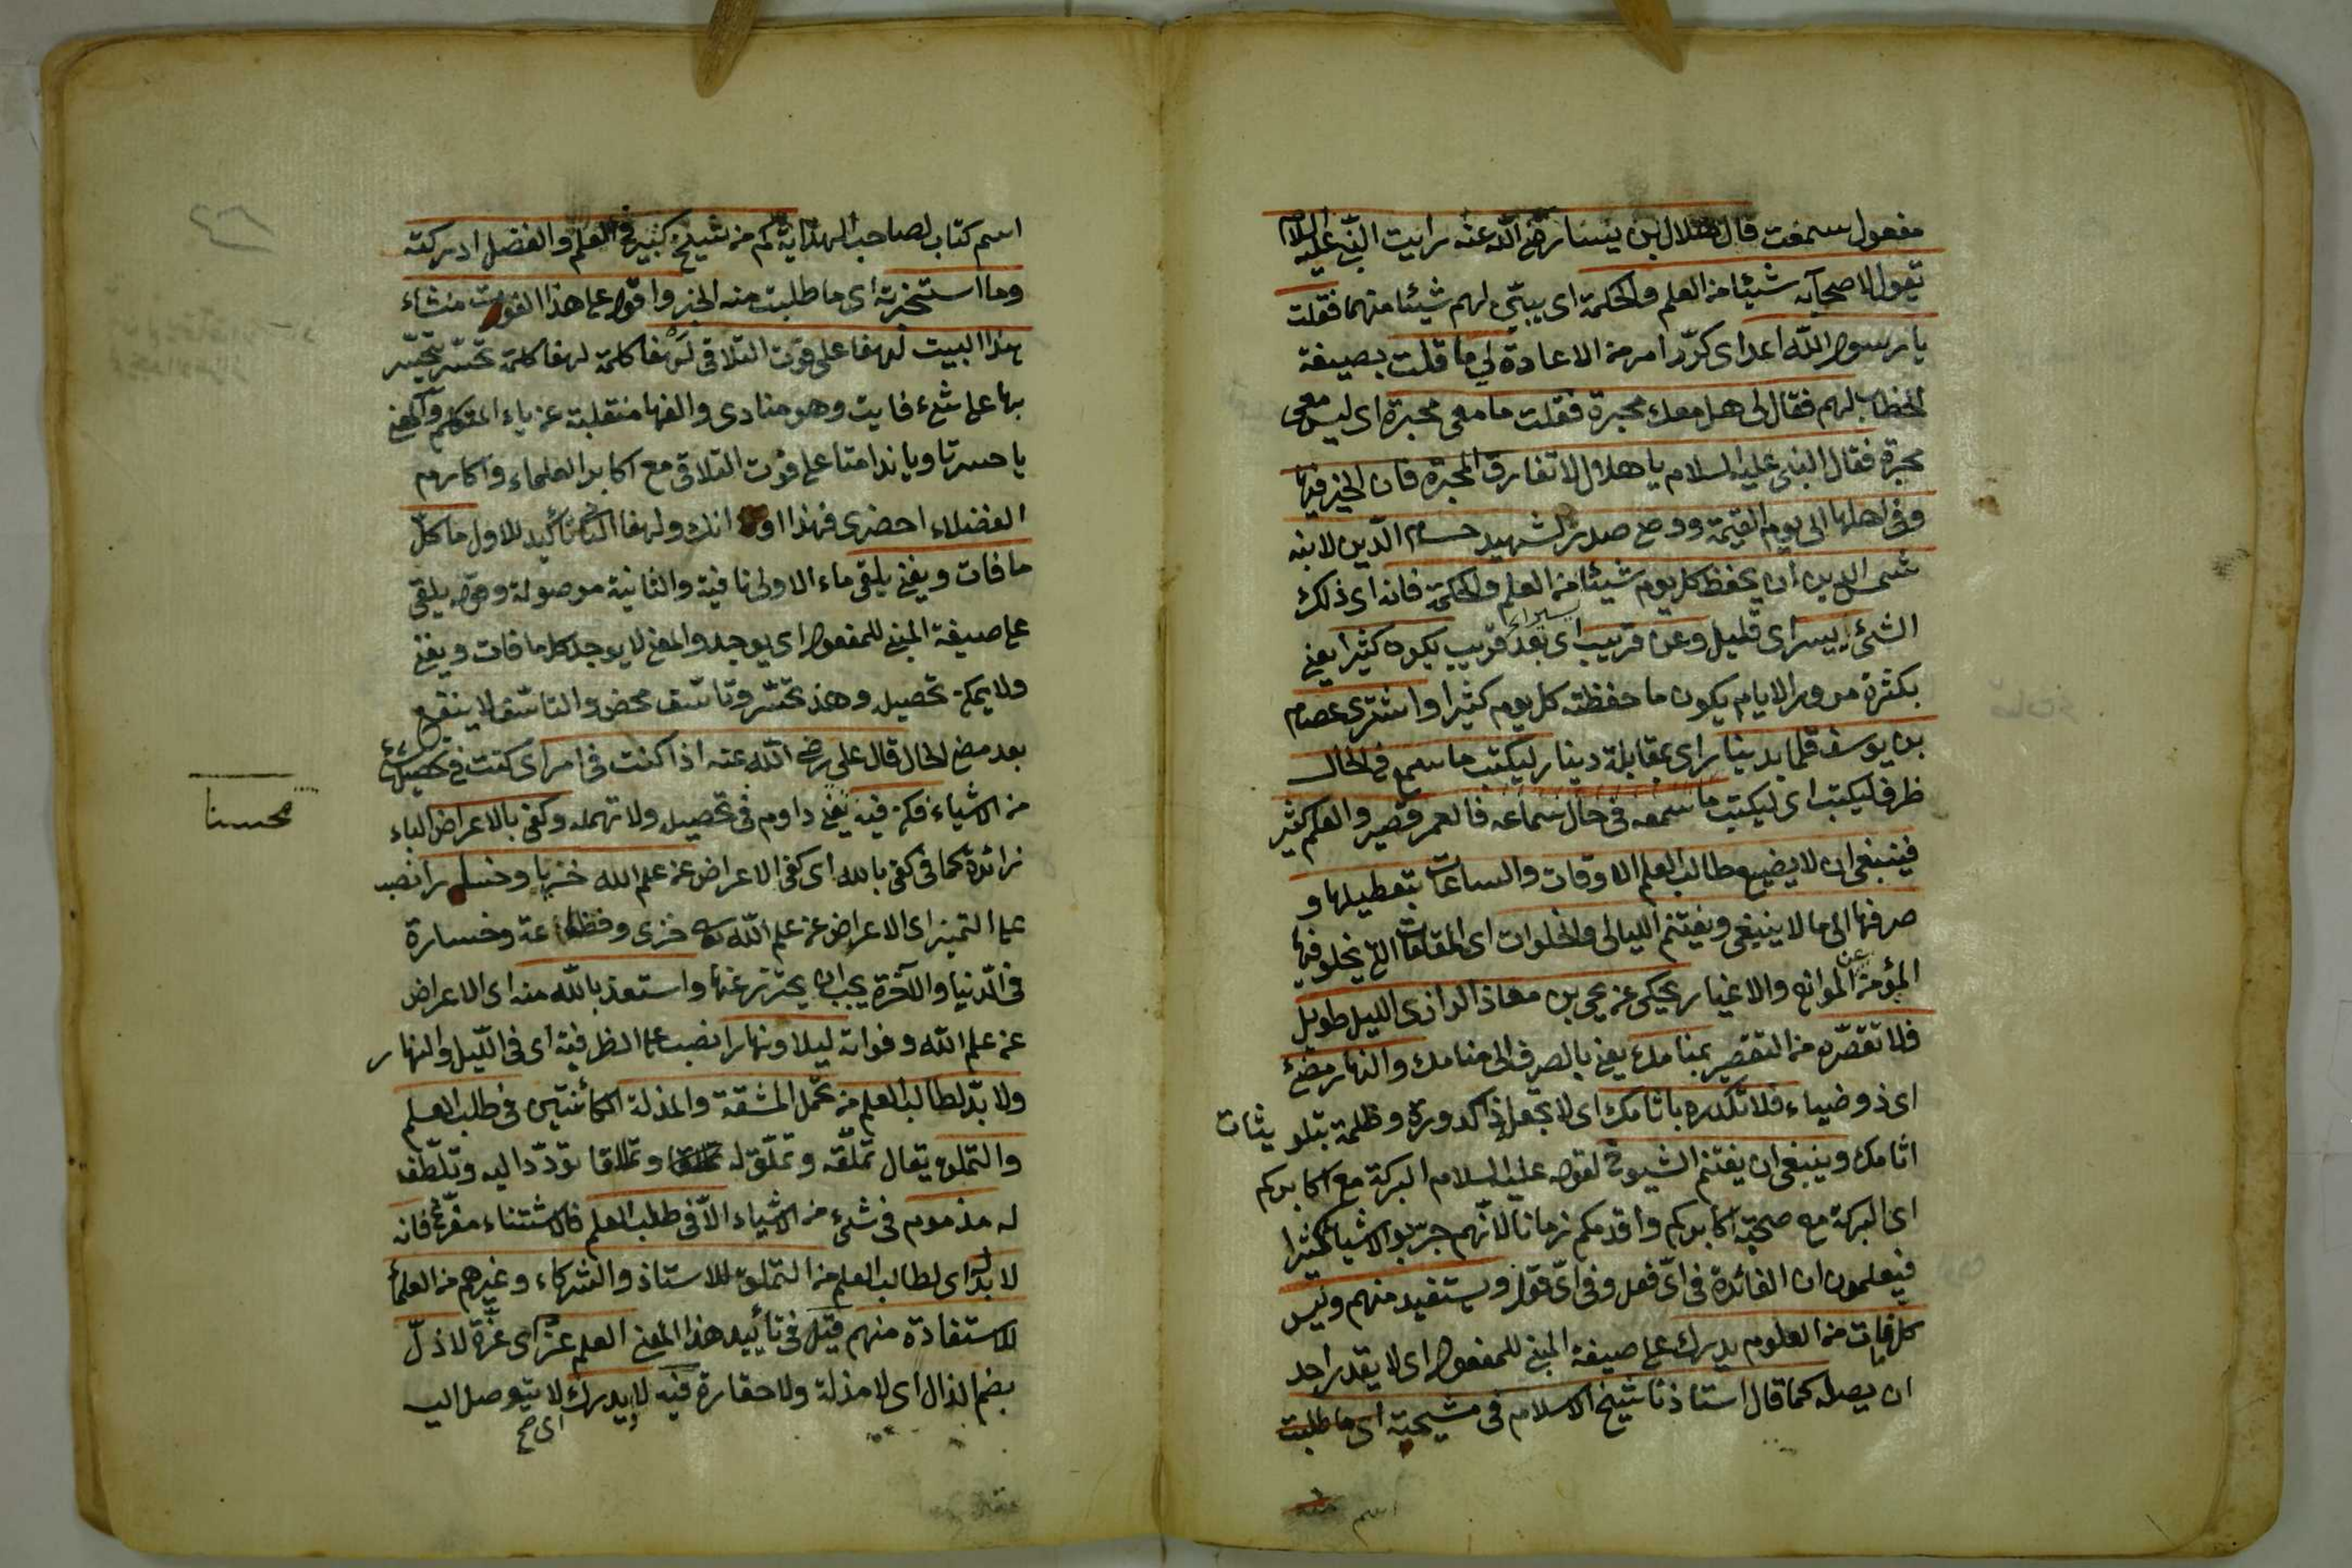 مفعول سمعت قال هلال بن يسار رضى الله عنه رايت النبى عليه السلام
يقول لاصحابه شيئا من العلم والحكمة اى يبين لهم شيئا منهما فقلت
يا رسول الله اعد اى كرّر امر من الاعادة لى ما قلت بصيغة
الخطاب لهم فقال لى هل معك محبرة فقلت ما معى محبرة اى ليس معى
محبرة فقال النبى عليه السلام يا هلال لا تفارق المحبرة فان الخير فيها
وفى اهلها الى يوم القيمة ووصى صدر الشهيد حسام الدين لابنه
شمس الدين ان يحفظ كل يوم شيئا من العلم والحكمة فانه اى ذلك
الشئ يسير اى قليل وعن قريب اى بعد قريب يكون كثيرا يعنى
بكثرة مرور الايام يكون ما حفظته كل يوم كثيرا واشترى عصام
بن يوسف قلما بدينار اى بمقابلة دينار ليكتب ما سمع فى الحال
ظرف ليكتب اى ليكتب ما سمعه فى حال سماعه فالعمر قصير والعلم كثير
فينبغى ان لا يضيع طالب العلم الاوقات والساعات بتعطيلها و
صرفها الى ما لا ينبغى ويغتنم الليالى والخلوات اى المقامات التى يخلو فيها
المؤمن عن الموانع والاغيار يحكى عن يحيى بن معاذ الرازى الليل طويل
فلا تقصّره من التقصير بمنامك يعنى بالصرف الى منامك والنهار مضئ
اى ذو ضياء فلا تكدره باثامك اى لا تجعل ذا كدورة وظلمة بتلويثات
اثامك وينبغى ان يغتنم الشيوخ لقوله عليه السلام البركة مع اكابركم
اى البركة مع صحبة اكابركم واقدمكم زمانا لانهم جربوا الاشياء كثيرا
فيعلمون ان الفائدة فى اى فعل وفى اى قول ويستفيد منهم وليس
كل ما فات من العلوم يدرك على صيغة المبنى للمفعول اى لا يقدر احد
ان يصله كما قال استاذنا شيخ الاسلام فى مشيخته اى ما طلبت
اسم
اسم كتاب لصاحب الهداية كم من شيخ كبير فى العلم والفضل ادركته
وما استخبرته اى ما طلبت منه الخبر واقول على هذا الفوت منشاء
هذا البيت لهفا على فوت التلاقى لهفا كلمة لهفا كلمة تحسّر يتحسّر
بها على شئ فايت وهو منادى والفها منقلبة عن ياء المتكلم والمعنى
يا حسرتا ويا ندامتا على فوت التلاقى مع اكابر العلماء واكارم
الفضلاء احضرى فهذا اوانك ولهفا الثانى تأكيد للاول ما كل
ما فات ويفنى يلقى ماء الاولى نافية والثانية موصولة وقوله يلقى
على صيغة المبنى للمفعول اى يوجد والمعنى لا يوجد كل ما فات ويفنى
ولا يمكن تحصيله وهذ تحسّر وتاسّف محض والتاسّف لا ينفع
بعد مضى الحال قال على رضى الله عنه اذا كنت فى امر اى كنت فى تحصيل شئ
من الاشياء فكن فيه يعنى داوم فى تحصيله ولا تهمله وكفى بالاعراض الباء
زائدة كما فى كفى بالله اى كفى الاعراض عن علم الله خزيا وخسارا نصب
على التميز اى الاعراض عن علم الله خزى وفظاعة وخسارة
فى الدنيا والآخرة يجب ان يحترز عنها واستعذ بالله منه اى الاعراض
عن علم الله وفواته ليلا ونهارا نصب على الظرفية اى فى الليل والنهار
ولا بدّ لطالب العلم من تحمل المشقة والمذلة الكائنتين فى طلب العلم
والتملق يقال تملّقه وتملّق له وتملاقا تودّد اليه وتلطف
له مذموم فى شئ من الاشياء الا فى طلب العلم فالاستثناء مفرغ فانه
لا بد له اى لطالب العلم من التملق للاستاذ والشركاء وغيرهم من العلماء
للاستفادة منهم قيل فى تأييد هذا المعنى العلم عزّ اى عزّة لا ذلّ
بضم الذال اى لا مذلة ولا حقارة فيه لا يدرك لا يتوصل اليه
اى صح
محسنا